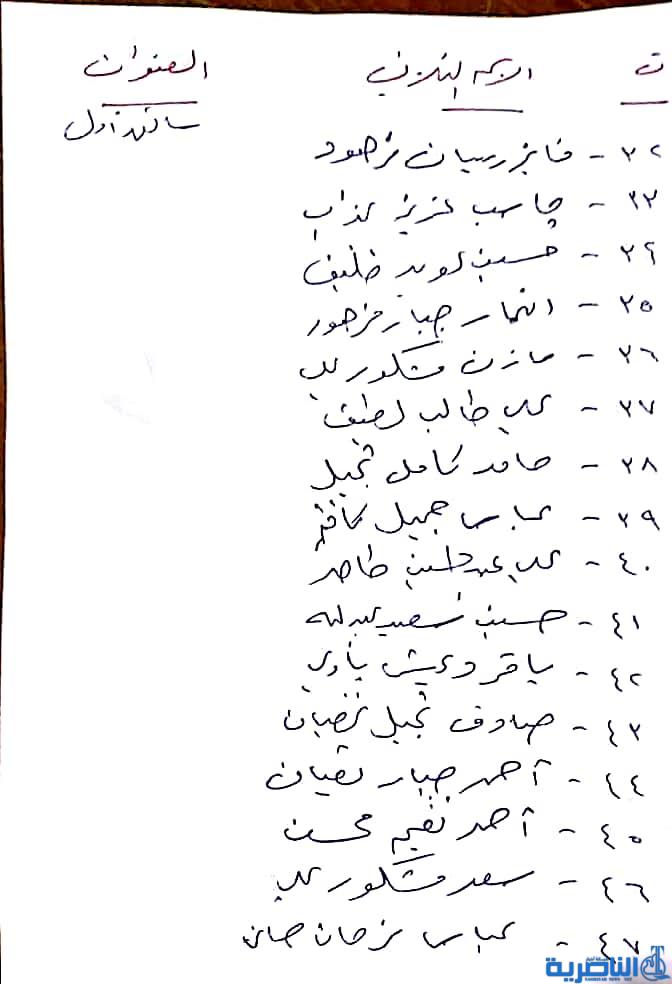 ت الاسم الثلاثي العنوان
سائق اول
٣٢ - فايز رسان مزهود
٣٣ - جاسب عزيز عذاب
٣٤ - حسين خليف
٣٥ - انمار جبار مزهور
٣٦ - مازن مشكور علي
٣٧ - علي طالب لطيف
٣٨ - حامد كامل ثجيل
٣٩ - عباس جميل كاظم
٤٠ - علي عبد حسين طاهر
٤١ - حسين سعيد عبدلله
٤٢ - باقر دعيش ياوي
٤٣ - صادق ثجيل غضبان
٤٤ - أحمد جبار
٤٥ - أحمد نعيم محسن
٤٦ - سعد مشكور علي
٤٧ - عباس فرحان
شبكة أخبار
الناصرية